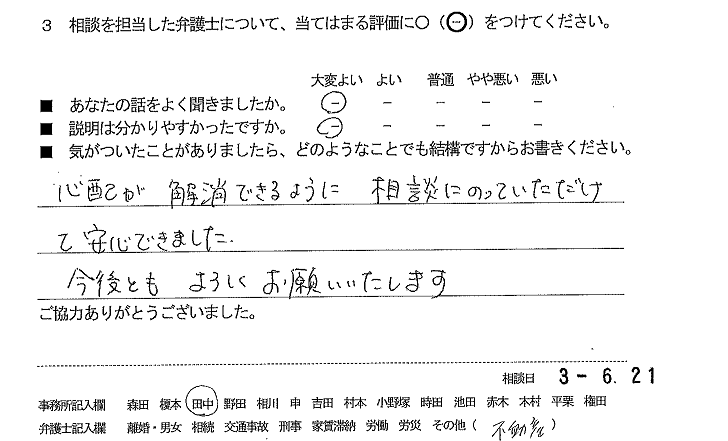 3 相談を担当した弁護士について、当てはまる評価に○（⊖）をつけてください。
大変よい よい 普通 やや悪い 悪い
■ あなたの話をよく聞きましたか。 － － － － －
■ 説明は分かりやすかったですか。 － － － － －
■ 気がついたことがありましたら、どのようなことでも結構ですからお書きください。
心配が解消できるように 相談にのっていただけ
て安心できました.
今後とも よろしくお願いいたします
ご協力ありがとうございました。
相談日 3 - 6. 21
事務所記入欄 森田 榎本 田中 野田 相川 申 吉田 村本 小野塚 時田 池田 赤木 木村 平栗 権田
弁護士記入欄 離婚・男女 相続 交通事故 刑事 家賃滞納 労働 労災 その他（不動産）